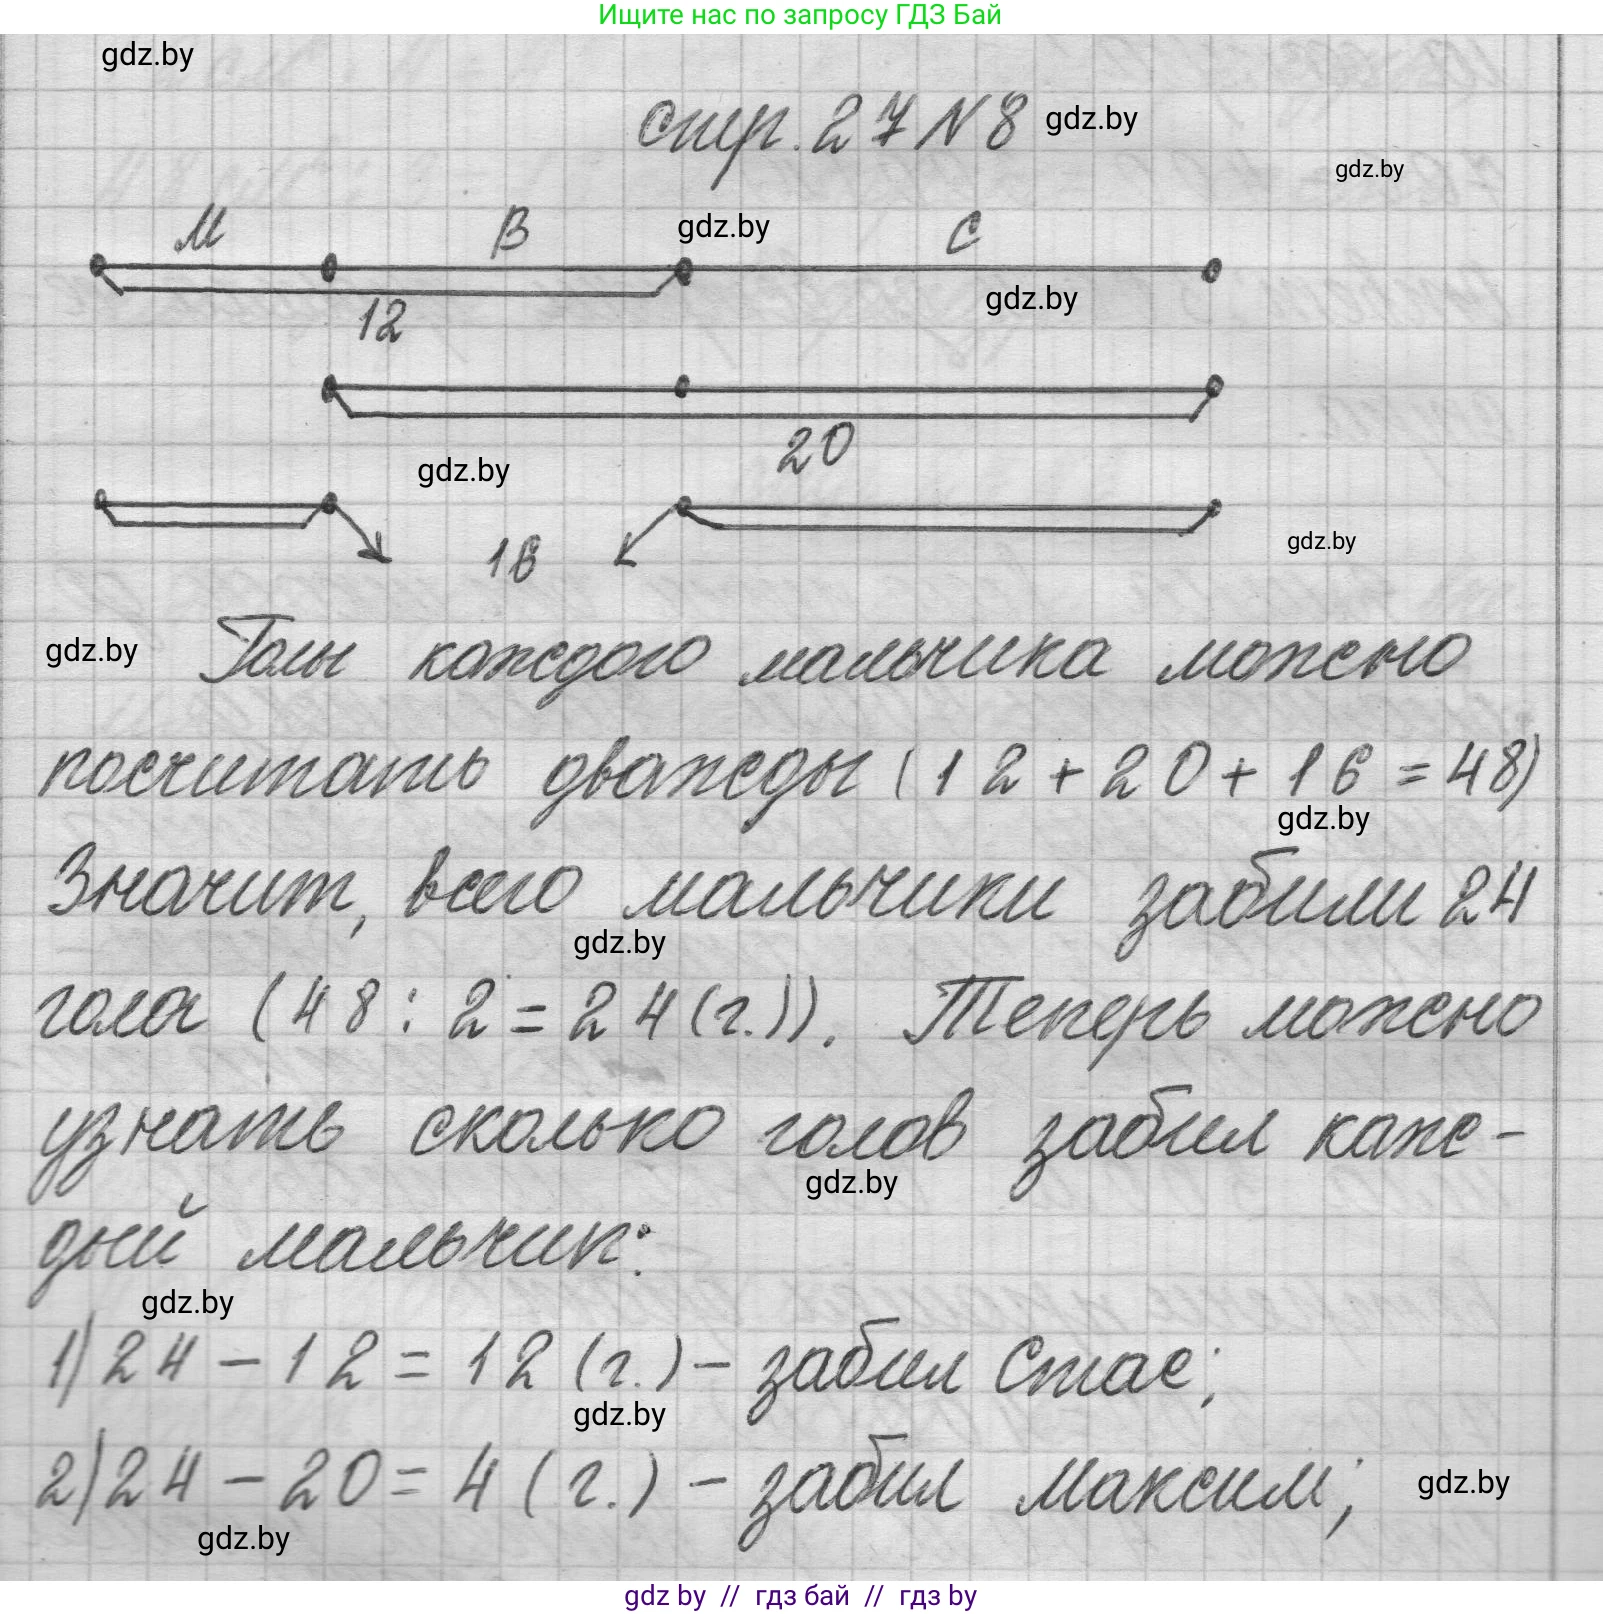 Ищите нас по запросу ГДЗ Бай
gdz.by
стр. 27 N 8 gdz.by
gdz.by
М В gdz.by С
gdz.by
12
20
gdz.by
16
gdz.by
gdz.by Голы каждого мальчика можно
посчитать дважды (12+20+16=48)
gdz.by
Значит, всего мальчики забили 24
gdz.by
гола (48:2=24(г.)). Теперь можно
узнать сколько голов забил каж-
gdz.by
дый мальчик:
gdz.by
1) 24-12=12 (г.) - забил Стас;
gdz.by
2) 24-20=4 (г.) - забил Максим; gdz.by
gdz.by
gdz by // гдз бай // гдз by